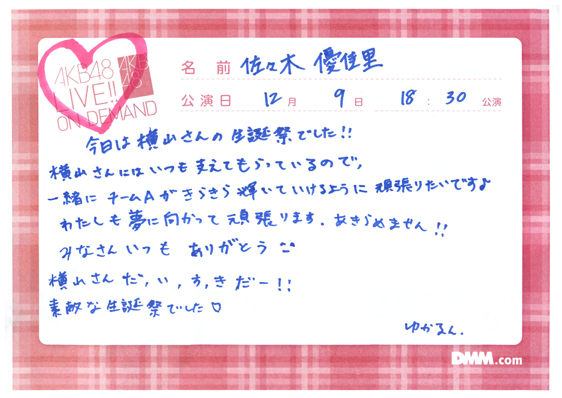 AKB48
LIVE!!
ON DEMAND
AKB
48
名前 佐々木 優佳里
公演日 12月 9日 18:30公演
今日は横山さんの生誕祭でした!!
横山さんにはいつも支えてもらっているので、
一緒にチームAがきらきら輝いていけるように頑張りたいですよ
わたしも夢に向かって頑張ります。あきらめません!!
みなさんいつも ありがとう
横山さん だ,い,す,きだー!!
素敵な生誕祭でした♡
ゆかるん。
DMM.com